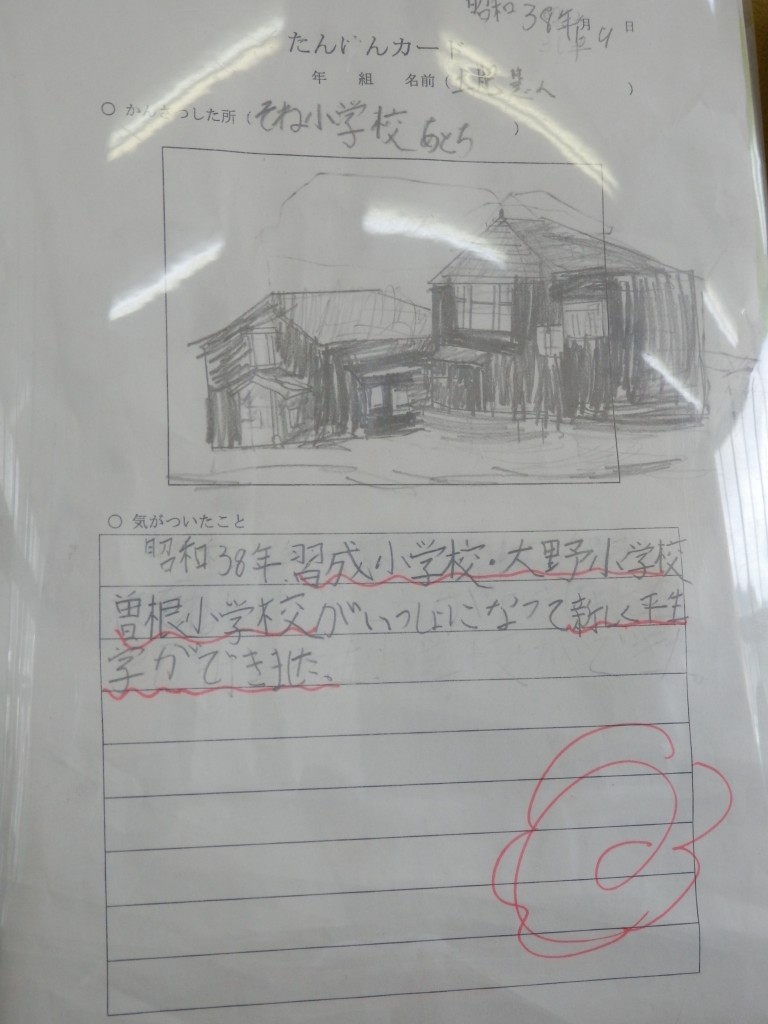 昭和38年 月 日
たんけんカード
年 組 名前( )
○ かんさつした所(そね小学校あとち)
○ 気がついたこと
昭和38年 習成小学校・大野小学校
曽根小学校がいっしょになって新しく平生
字ができました。